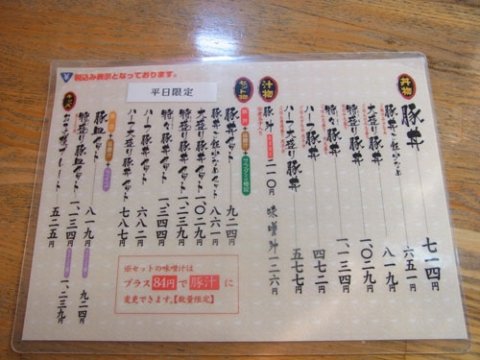 税込み表示となっております。
平日限定
丼物
豚丼 七一四
豚丼・軽いめ 六五一
大盛り豚丼 八一九
特盛り豚丼 一、〇二九
特な豚丼 一、一三四
ハーフ豚丼 四七二
ハーフ大盛り豚丼 五七七
汁物
豚汁 二一〇
味噌汁 一二六
セット物
豚丼セット 九二四
豚丼・軽いめセット 八六一
大盛り豚丼セット 一、〇二九
特盛り豚丼セット 一、二三九
特な豚丼セット 一、三四四
ハーフ豚丼セット 六八二
ハーフ大盛り豚丼セット 七八七
豚皿セット 八一九 九二四
特盛り豚皿セット 一、一三四 一、二三九
五二五
※セットの味噌汁は
プラス84円で豚汁に
変更できます。【数量限定】